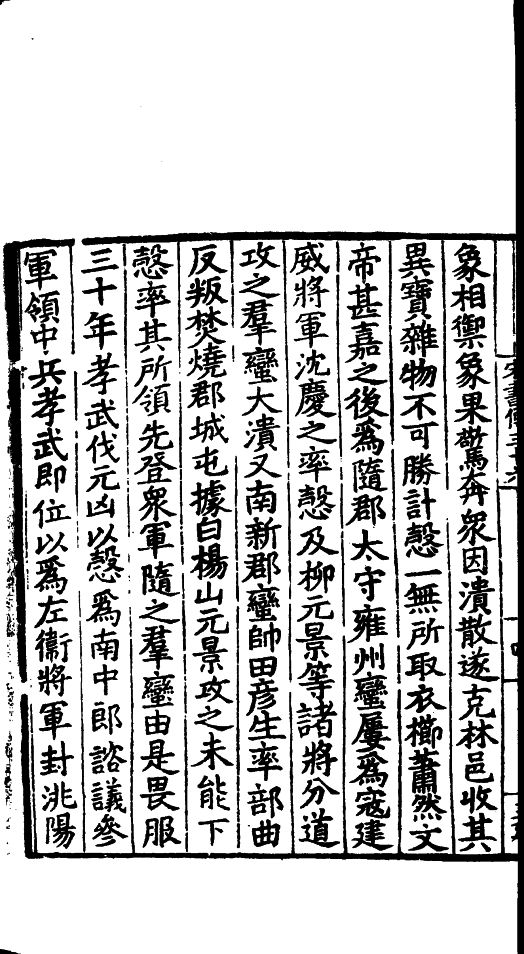 象相禦象果驚奔衆因潰散遂克林邑收其
異寶雜物不可勝計慤一無所取衣櫛蕭然文
帝甚嘉之後爲隨郡太守雍州蠻屢爲寇建
威將軍沈慶之率慤及柳元景等諸將分道
攻之羣蠻大潰又南新郡蠻帥田彦生率部曲
反叛焚燒郡城屯據白楊山元景攻之未能下
慤率其所領先登衆軍隨之羣蠻由是畏服
三十年孝武伐元凶以慤爲南中郎諮議參
軍領中兵孝武即位以爲左衞將軍封洮陽